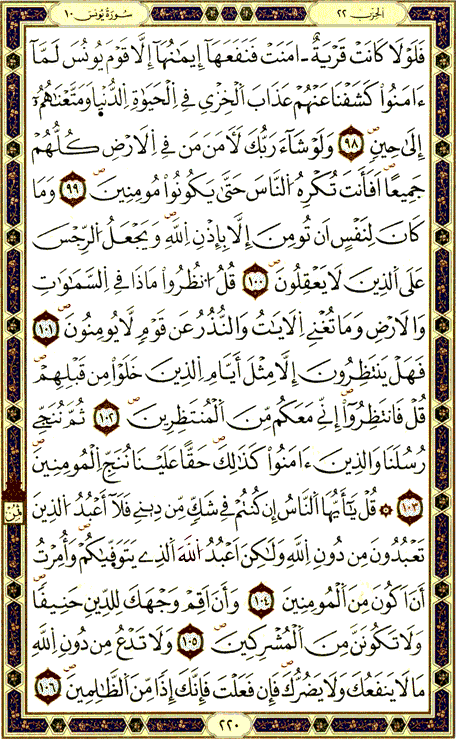 الحزب ٢٢
سورة يونس ١٠
فَلَوْلَا كَانَتْ قَرْيَةٌ ـ امَنَتْ فَنَفَعَهَا إِيمَٰنُهَا إِلَّا قَوْمَ يُونُسَ لَمَّا
ءَامَنُوا كَشَفْنَا عَنْهُمْ عَذَابَ اَلْخِزْيِ فِي اِلْحَيَوٰةِ اِلدُّنْيا وَمَتَّعْنَٰهُمُۥ
إِلَىٰ حِينٍ ٩٨ وَلَوْ شَآءَ رَبُّكَ لَأٓمَنَ مَن فِي اِلَارْضِ كُلُّهُمْ
جَمِيعًا اَفَأَنتَ تُكْرِهُ اُلنَّاسَ حَتَّىٰ يَكُونُوا مُومِنِينَ ٩٩ وَمَا
كَانَ لِنَفْسٍ اَن تُومِنَ إِلَّا بِإِذْنِ اِللَّهِ وَيَجْعَلُ اُلرِّجْسَ
عَلَى اَلذِينَ لَا يَعْقِلُونَ ١٠٠ قُلُ اُنظُرُوا مَاذَا فِي اِلسَّمَٰوَٰتِ
وَالَارْضِ وَمَا تُغْنِي اِلَايَٰتُ وَالنُّذُرُ عَن قَوْمٍ لَّا يُومِنُونَ ١٠١
فَهَلْ يَنتَظِرُونَ إِلَّا مِثْلَ أَيَّامِ اِلذِينَ خَلَوْا مِن قَبْلِهِمْ
قُلْ فَانتَظِرُوا إِنِّي مَعَكُم مِّنَ اَلْمُنتَظِرِينَ ١٠٢ ثُمَّ نُنَجِّي
رُسُلَنَا وَالذِينَ ءَامَنُوا كَذَٰلِكَ حَقًّا عَلَيْنَا نُنَجِّ اِلْمُومِنِينَ
١٠٣ ۞ قُلْ يَٰٓأَيُّهَا اَلنَّاسُ إِن كُنتُمْ فِي شَكٍّ مِّن دِينِي فَلَآ أَعْبُدُ اُلذِينَ
ثمن
تَعْبُدُونَ مِن دُونِ اِللَّهِ وَلَٰكِنَ اَعْبُدُ اُللَّهَ اَلذِي يَتَوَفَّيٰكُمْ وَأُمِرْتُ
أَنَ اَكُونَ مِنَ اَلْمُومِنِينَ ١٠٤ وَأَنَ اَقِمْ وَجْهَكَ لِلدِّينِ حَنِيفًا
وَلَا تَكُونَنَّ مِنَ اَلْمُشْرِكِينَ ١٠٥ وَلَا تَدْعُ مِن دُونِ اِللَّهِ
مَا لَا يَنفَعُكَ وَلَا يَضُرُّكَ فَإِن فَعَلْتَ فَإِنَّكَ إِذًا مِّنَ اَلظَّٰلِمِينَ ١٠٦
٢٢٠